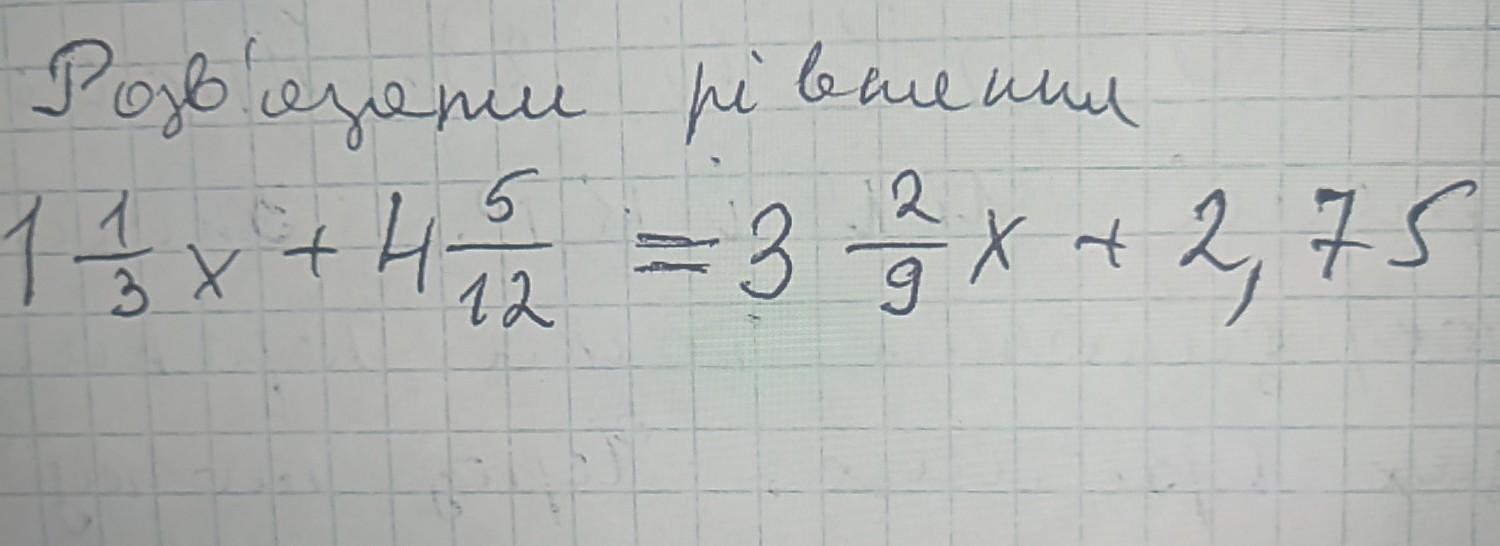 Розв'язати рівняння
1 1/3 x + 4 5/12 = 3 2/9 x + 2,75